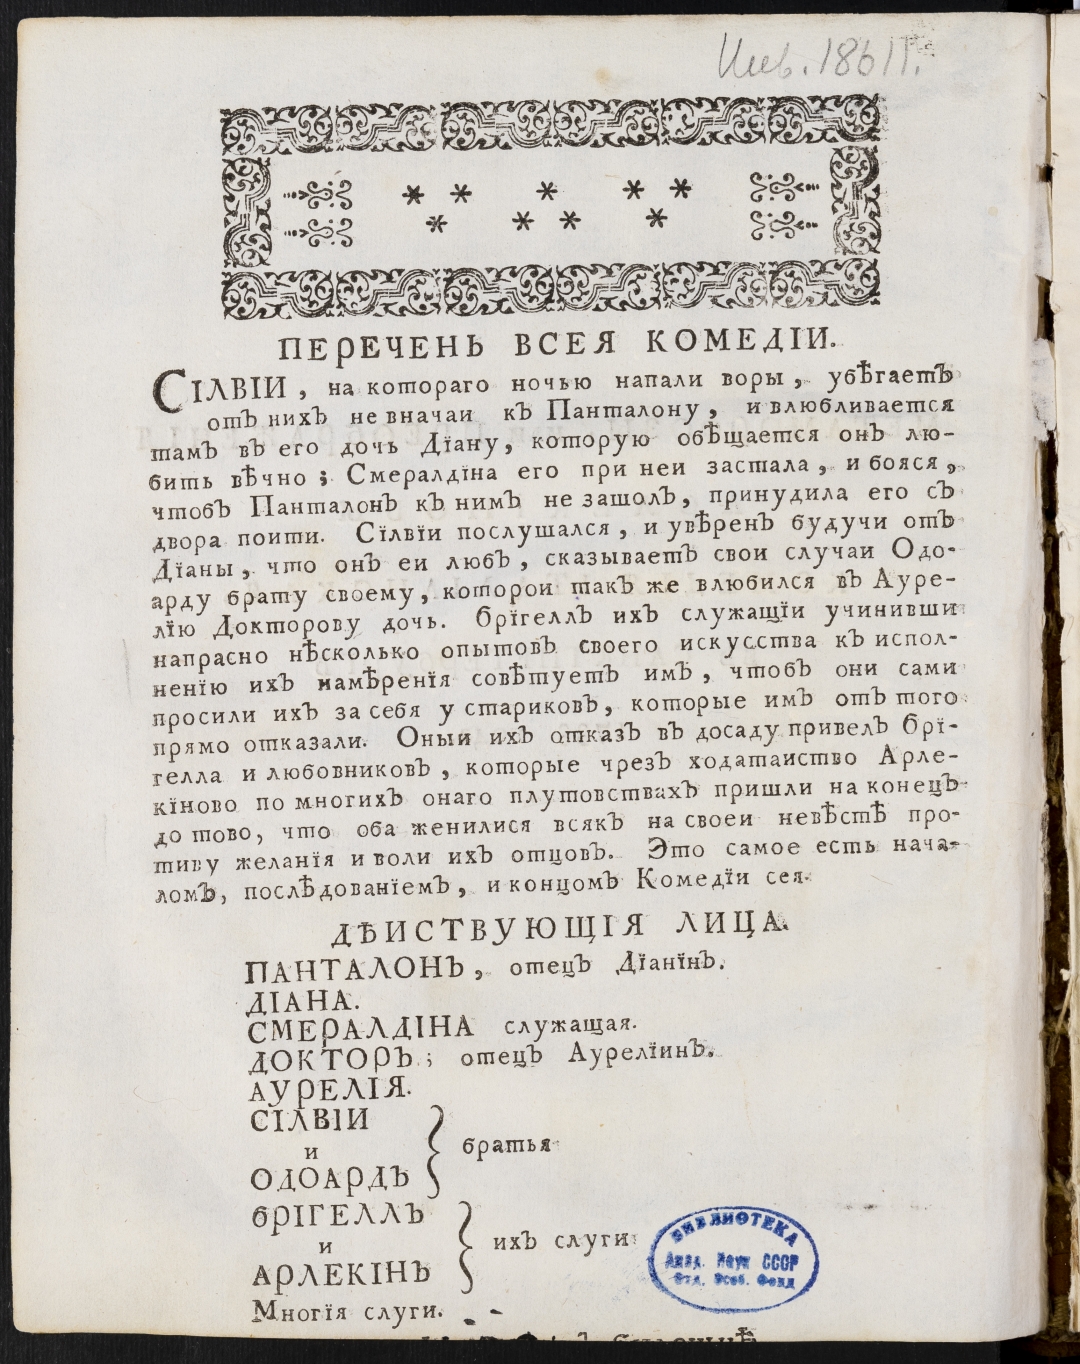 Инв. 18611.
ПЕРЕЧЕНЬ ВСЕЯ КОМЕДІИ.
СІЛВІИ, на котораго ночью напали воры, убѣгаетЪ
отЪ нихЪ не вначаи кЪ Панталону, и влюбливается
тамЪ вЪ его дочь Дїану, которую обѣщается онЪ лю-
бить вѣчно; Смералдїна его при неи застала, и бояся,
чтобЪ ПанталонЪ кЪ нимЪ не зашолЪ, принудила его сЪ
двора поити. Сїлвїи послушался, и увѣренЪ будучи отЪ
Дїаны, что онЪ еи любЪ, сказываетЪ свои случаи Одо-
арду брату своему, которои такЪ же влюбился вЪ Ауре-
лїю Докторову дочь. брїгеллЪ ихЪ служащїи учинивши
напрасно нѣсколько опытовЪ своего искусства кЪ испол-
ненїю ихЪ намѣренїя совѣтуетЪ имЪ, чтобЪ они сами
просили ихЪ за себя у стариковЪ, которые имЪ отЪ того
прямо отказали. Оныи ихЪ отказЪ вЪ досаду привелЪ брї-
гелла и любовниковЪ, которые чрезЪ ходатаиство Арле-
кїново по многихЪ онаго плутовствахЪ пришли на конецЪ
до тово, что оба женилися всякЪ на своеи невѣстѣ про-
тиву желанїя и воли ихЪ отцовЪ. Это самое есть нача-
ломЪ, послѣдованїемЪ, и концомЪ Комедїи сея.
ДѢИСТВУЮЩІЯ ЛИЦА.
ПАНТАЛОНЪ, отецЪ ДїанїнЪ.
ДІАНА.
СМЕРАЛДІНА служащая.
ДОКТОРЪ; отецЪ АурелїинЪ.
АУРЕЛІЯ.
СІЛВІИ
и
ОДОАРДЪ
братья
бРІГЕЛЛЪ
и
АРЛЕКІНЪ
ихЪ слуги
Многїя слуги.
БИБЛИОТЕКА
Акад. Наук СССР
Отд. Всеб. Фонд